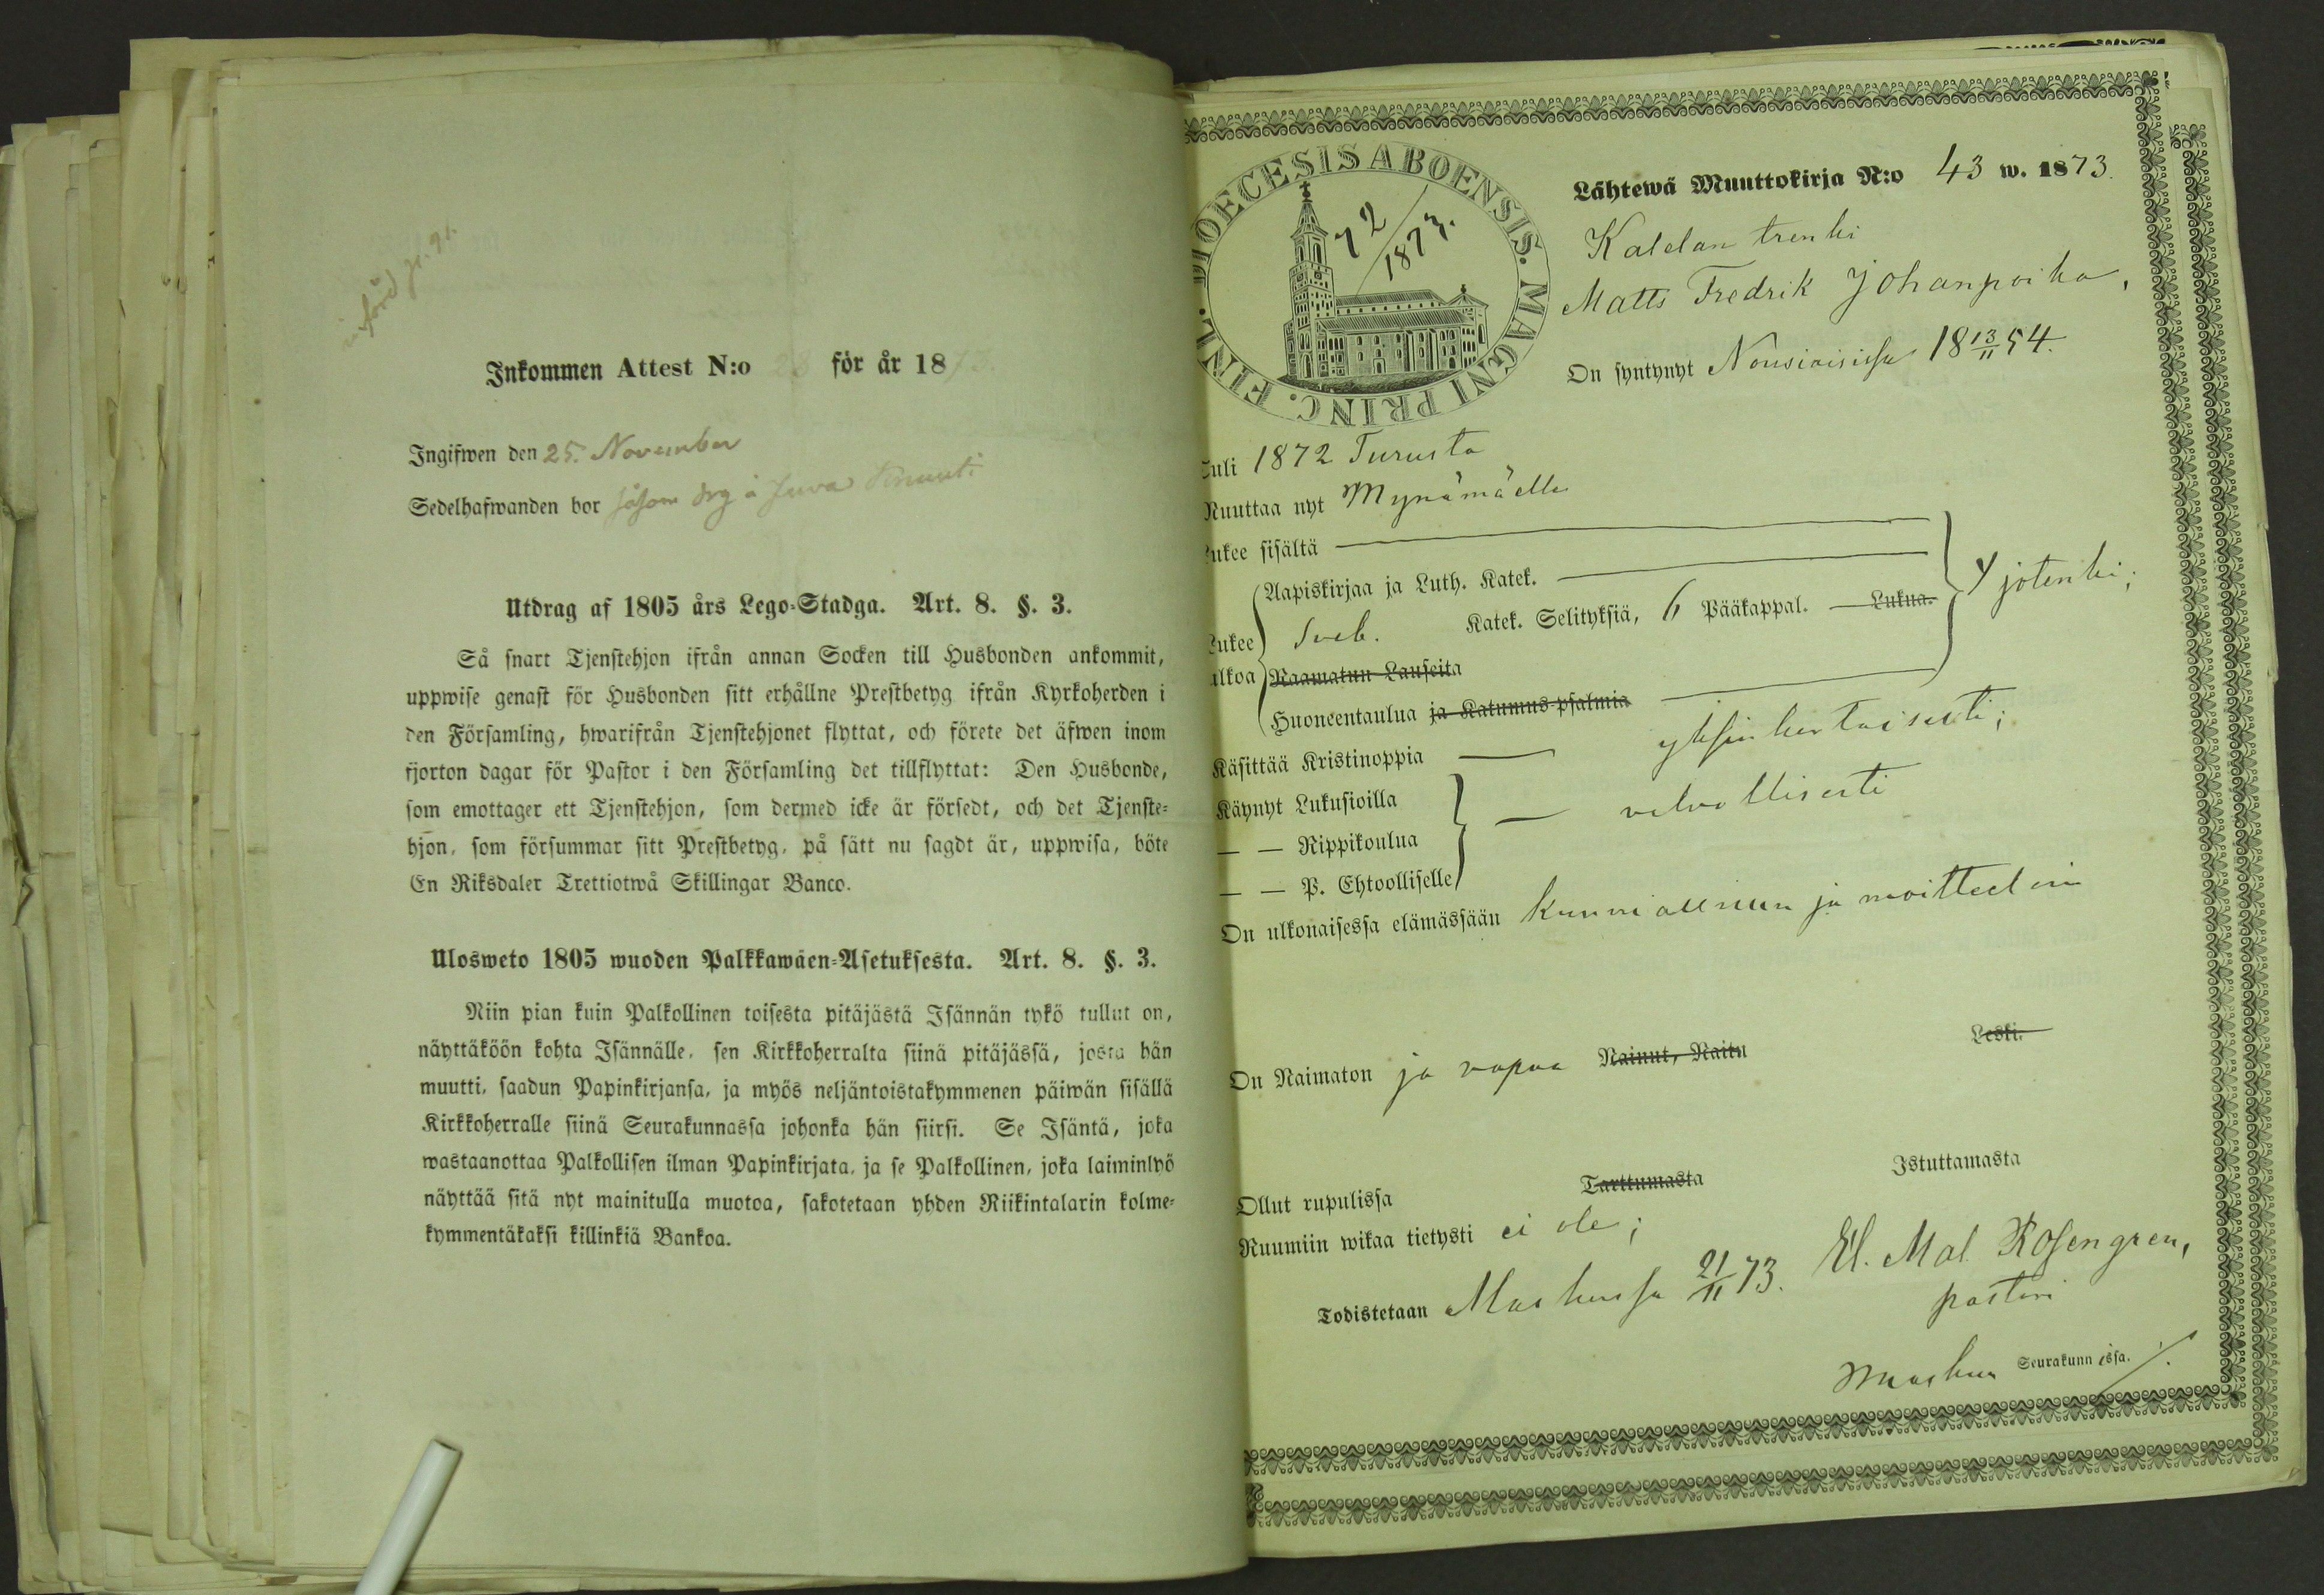 införd p. 91.
Inkommen Attest N:o för år 1873.
Ingifwen den 25. November
Sedelhafwanden bor såsom drg å Juva
Utdrag af 1805 års Lego-Stadga. Art. 8. §. 3.
Så snart Tjenstehjon ifrån annan Socken till Husbonden ankommit,
uppwise genast för Husbonden sitt erhållne Prestbetyg ifrån Kyrkoherden i
den Församling, hwarifrån Tjenstehjonet flyttat, och förete det äfwen inom
fjorton dagar för Pastor i den Församling det tillflyttat: Den Husbonde,
som emottager ett Tjenstehjon, som dermed icke är försedt, och det Tjenste-
hjon, som försummar sitt Prestbetyg, på sätt nu sagdt är, uppwisa, böte
En Riksdaler Trettiotwå Skillingar Banco.
Ulosweto 1805 wuoden Palkkawäen-Asetuksesta. Art. 8. §. 3.
Niin pian kuin Palkollinen toisesta pitäjästä Isännän tykö tullut on,
näyttäköön kohta Isännälle, sen Kirkkoherralta siinä pitäjässä, josta hän
muutti, saadun Papinkirjansa, ja myös neljäntoistakymmenen päiwän sisällä
Kirkkoherralle siinä Seurakunnassa johonka hän siirsi. Se Isäntä, joka
wastaanottaa Palkollisen ilman Papinkirjata, ja se Palkollinen, joka laiminlyö
näyttää sitä nyt mainitulla muotoa, sakotetaan yhden Riikintalarin kolme-
kymmentäkaksi killinkiä Bankoa.
DIOECESIS ABOENSIS. MAGNI PRINC. FINL.
72/1873.
Lähtewä Muuttokirja N:o 43 w. 1873.
Kalelan trenki
Matts Fredrik Johanpoika,
On syntynyt Nousiaisissa 18 13/11 54.
Tuli 1872 Turusta
Muuttaa nyt Mynämäelle
Lukee sisältä
Aapiskirjaa ja Luth. Katek.
Lukee ulkoa Sveb. Katek. Selityksiä, 6 Pääkappal. Lukua. jotenki;
Raamatun Lauseita
Huoneentaulua ja Katumus-psalmia
Käsittää Kristinoppia yksinkertaisesti;
Käynyt Lukusioilla
— — Rippikoulua velvollisesti
— — P. Ehtoolliselle
On ulkonaisessa elämässään kunniallinen ja moitteetoin
On Naimaton ja vapaa Nainut, Naitu Leski.
Ollut rupulissa Tarttumasta Istuttamasta
Ruumiin wikaa tietysti ei ole;
Todistetaan Maskussa 21/11 73. El. Mal. Rosengren,
pastori
Maskun Seurakunnissa.